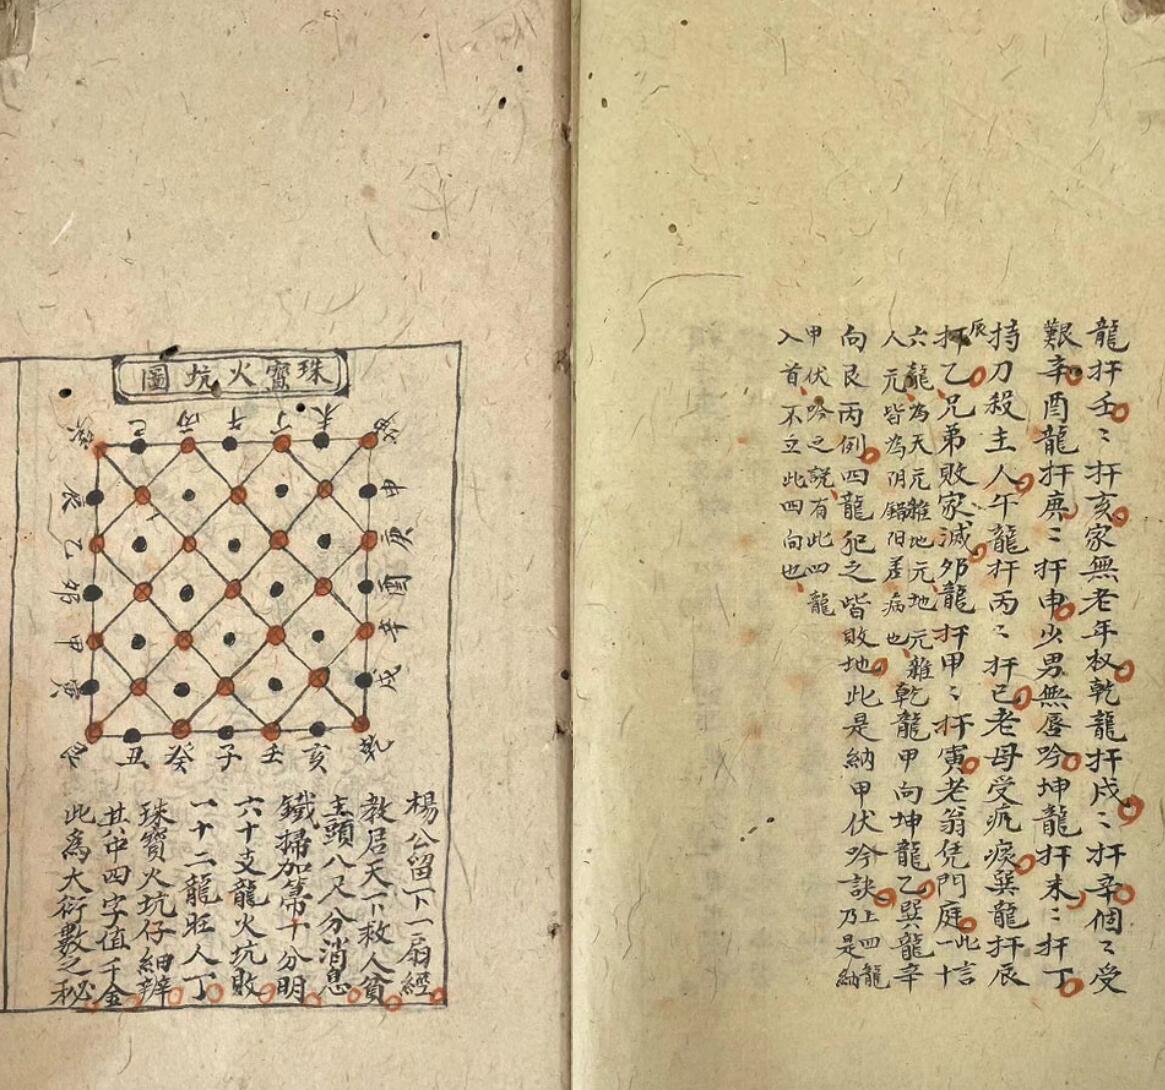 龍扞壬〻扞亥家無老年杈乾龍扞戌〻扞辛個〻受
艱辛酉龍扞庚〻扞申少男無唇吟坤龍扞未〻扞丁
持刀殺主人午龍扞丙〻扞巳老母受痰巽龍扞辰
辰
扞乙兄弟敗家滅夘龍扞甲〻扞寅老翁凭門庭
此言
一十
六龍為天元雜地元地元雜
人元皆為阴錯阳差病也
乾龍甲向坤龍乙巽龍辛
向艮丙例四龍犯之皆敗地此是納甲伏吟訣
上四龍
乃是納
甲伏吟之說有此四龍
入首不立此四向也
珠寶火坑圖
坤未丁午丙巳巽
申庚酉辛戌
辰乙夘甲寅
艮丑癸子壬亥乾
楊公留下一扇經
教居天下救人貧
主頭八尺分消息
鐵掃加箒十分明
六十支龍火坑敗
一十二龍旺人丁
珠寶火坑仔細辨
其中四字值千金
此為大衍數之秘